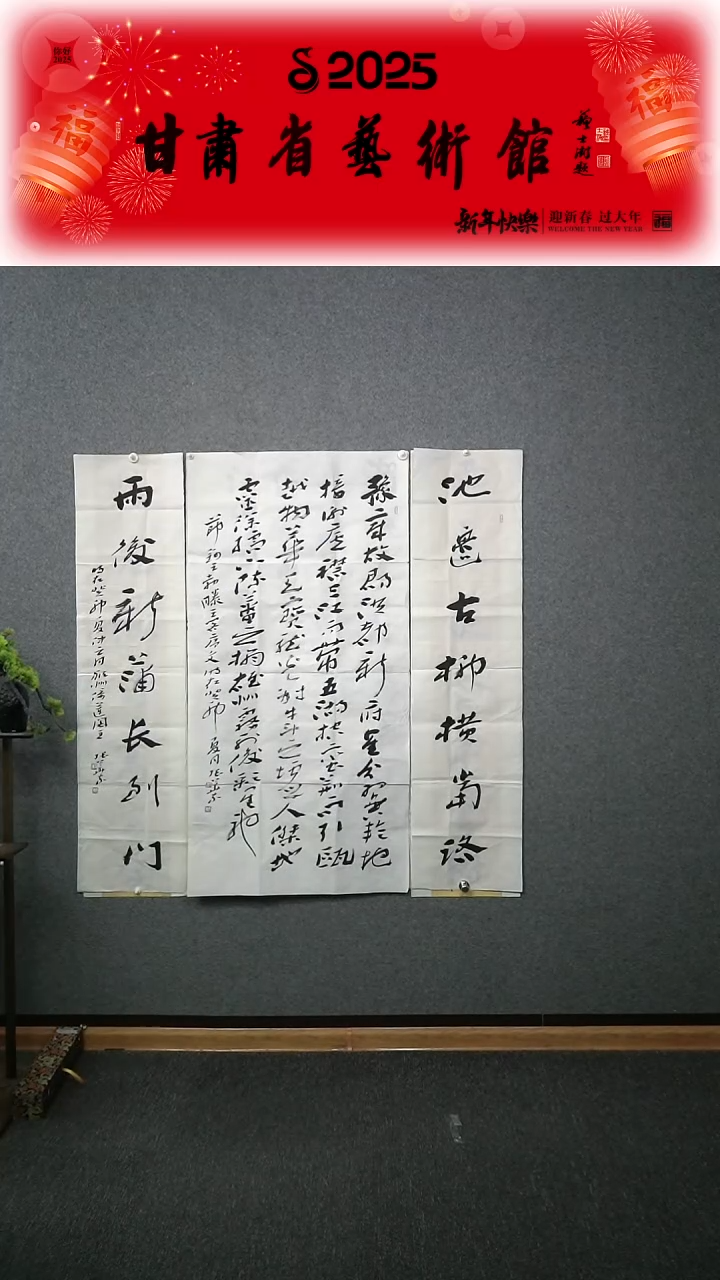 你好
2025
2025
福
福
甘肅省藝術館
蘇士澍題
新年快樂
迎新春 过大年
WELCOME THE NEW YEAR
福
池邊古柳橫當路
豫章故郡洪都新府星分翼軫地
接衡廬襟三江而帶五湖控蠻荊而引甌
越物華天寶龍光射斗牛之墟人傑地
靈徐孺下陳蕃之榻雄州霧列俊彩星馳
節錄王勃滕王閣序文時在癸卯 夏月
雨後新蒲長到門
時在癸卯夏